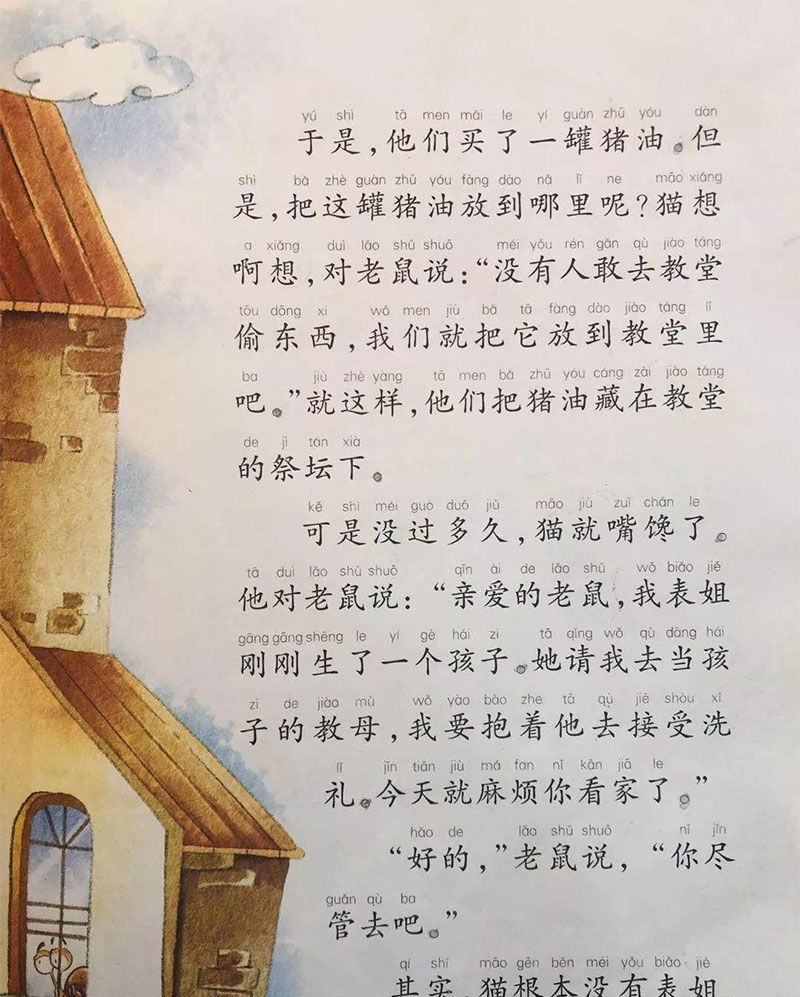 yú shì tā men mǎi le yí guàn zhū yóu dàn
于是，他们买了一罐猪油。但
shì bǎ zhè guàn zhū yóu fàng dào nǎ lǐ ne māo xiǎng
是，把这罐猪油放到哪里呢？猫想
a xiǎng duì lǎo shǔ shuō méi yǒu rén gǎn qù jiào táng
啊想，对老鼠说：“没有人敢去教堂
tōu dōng xi wǒ men jiù bǎ tā fàng dào jiào táng lǐ
偷东西，我们就把它放到教堂里
ba jiù zhè yàng tā men bǎ zhū yóu cáng zài jiào táng
吧。”就这样，他们把猪油藏在教堂
de jì tán xià
的祭坛下。
kě shì méi guò duō jiǔ māo jiù zuǐ chán le
可是没过多久，猫就嘴馋了。
tā duì lǎo shǔ shuō qīn ài de lǎo shǔ wǒ biǎo jiě
他对老鼠说：“亲爱的老鼠，我表姐
gāng gāng shēng le yí gè hái zi tā qǐng wǒ qù dāng hái
刚刚生了一个孩子。她请我去当孩
zi de jiào mǔ wǒ yào bào zhe tā qù jiē shòu xǐ
子的教母，我要抱着他去接受洗
lǐ jīn tiān jiù má fan nǐ kān jiā le
礼。今天就麻烦你看家了。”
hǎo de lǎo shǔ shuō nǐ jǐn
“好的，”老鼠说，“你尽
guǎn qù ba
管去吧。”
qí shí māo gēn běn méi yǒu biǎo jiě
其实，猫根本没有表姐